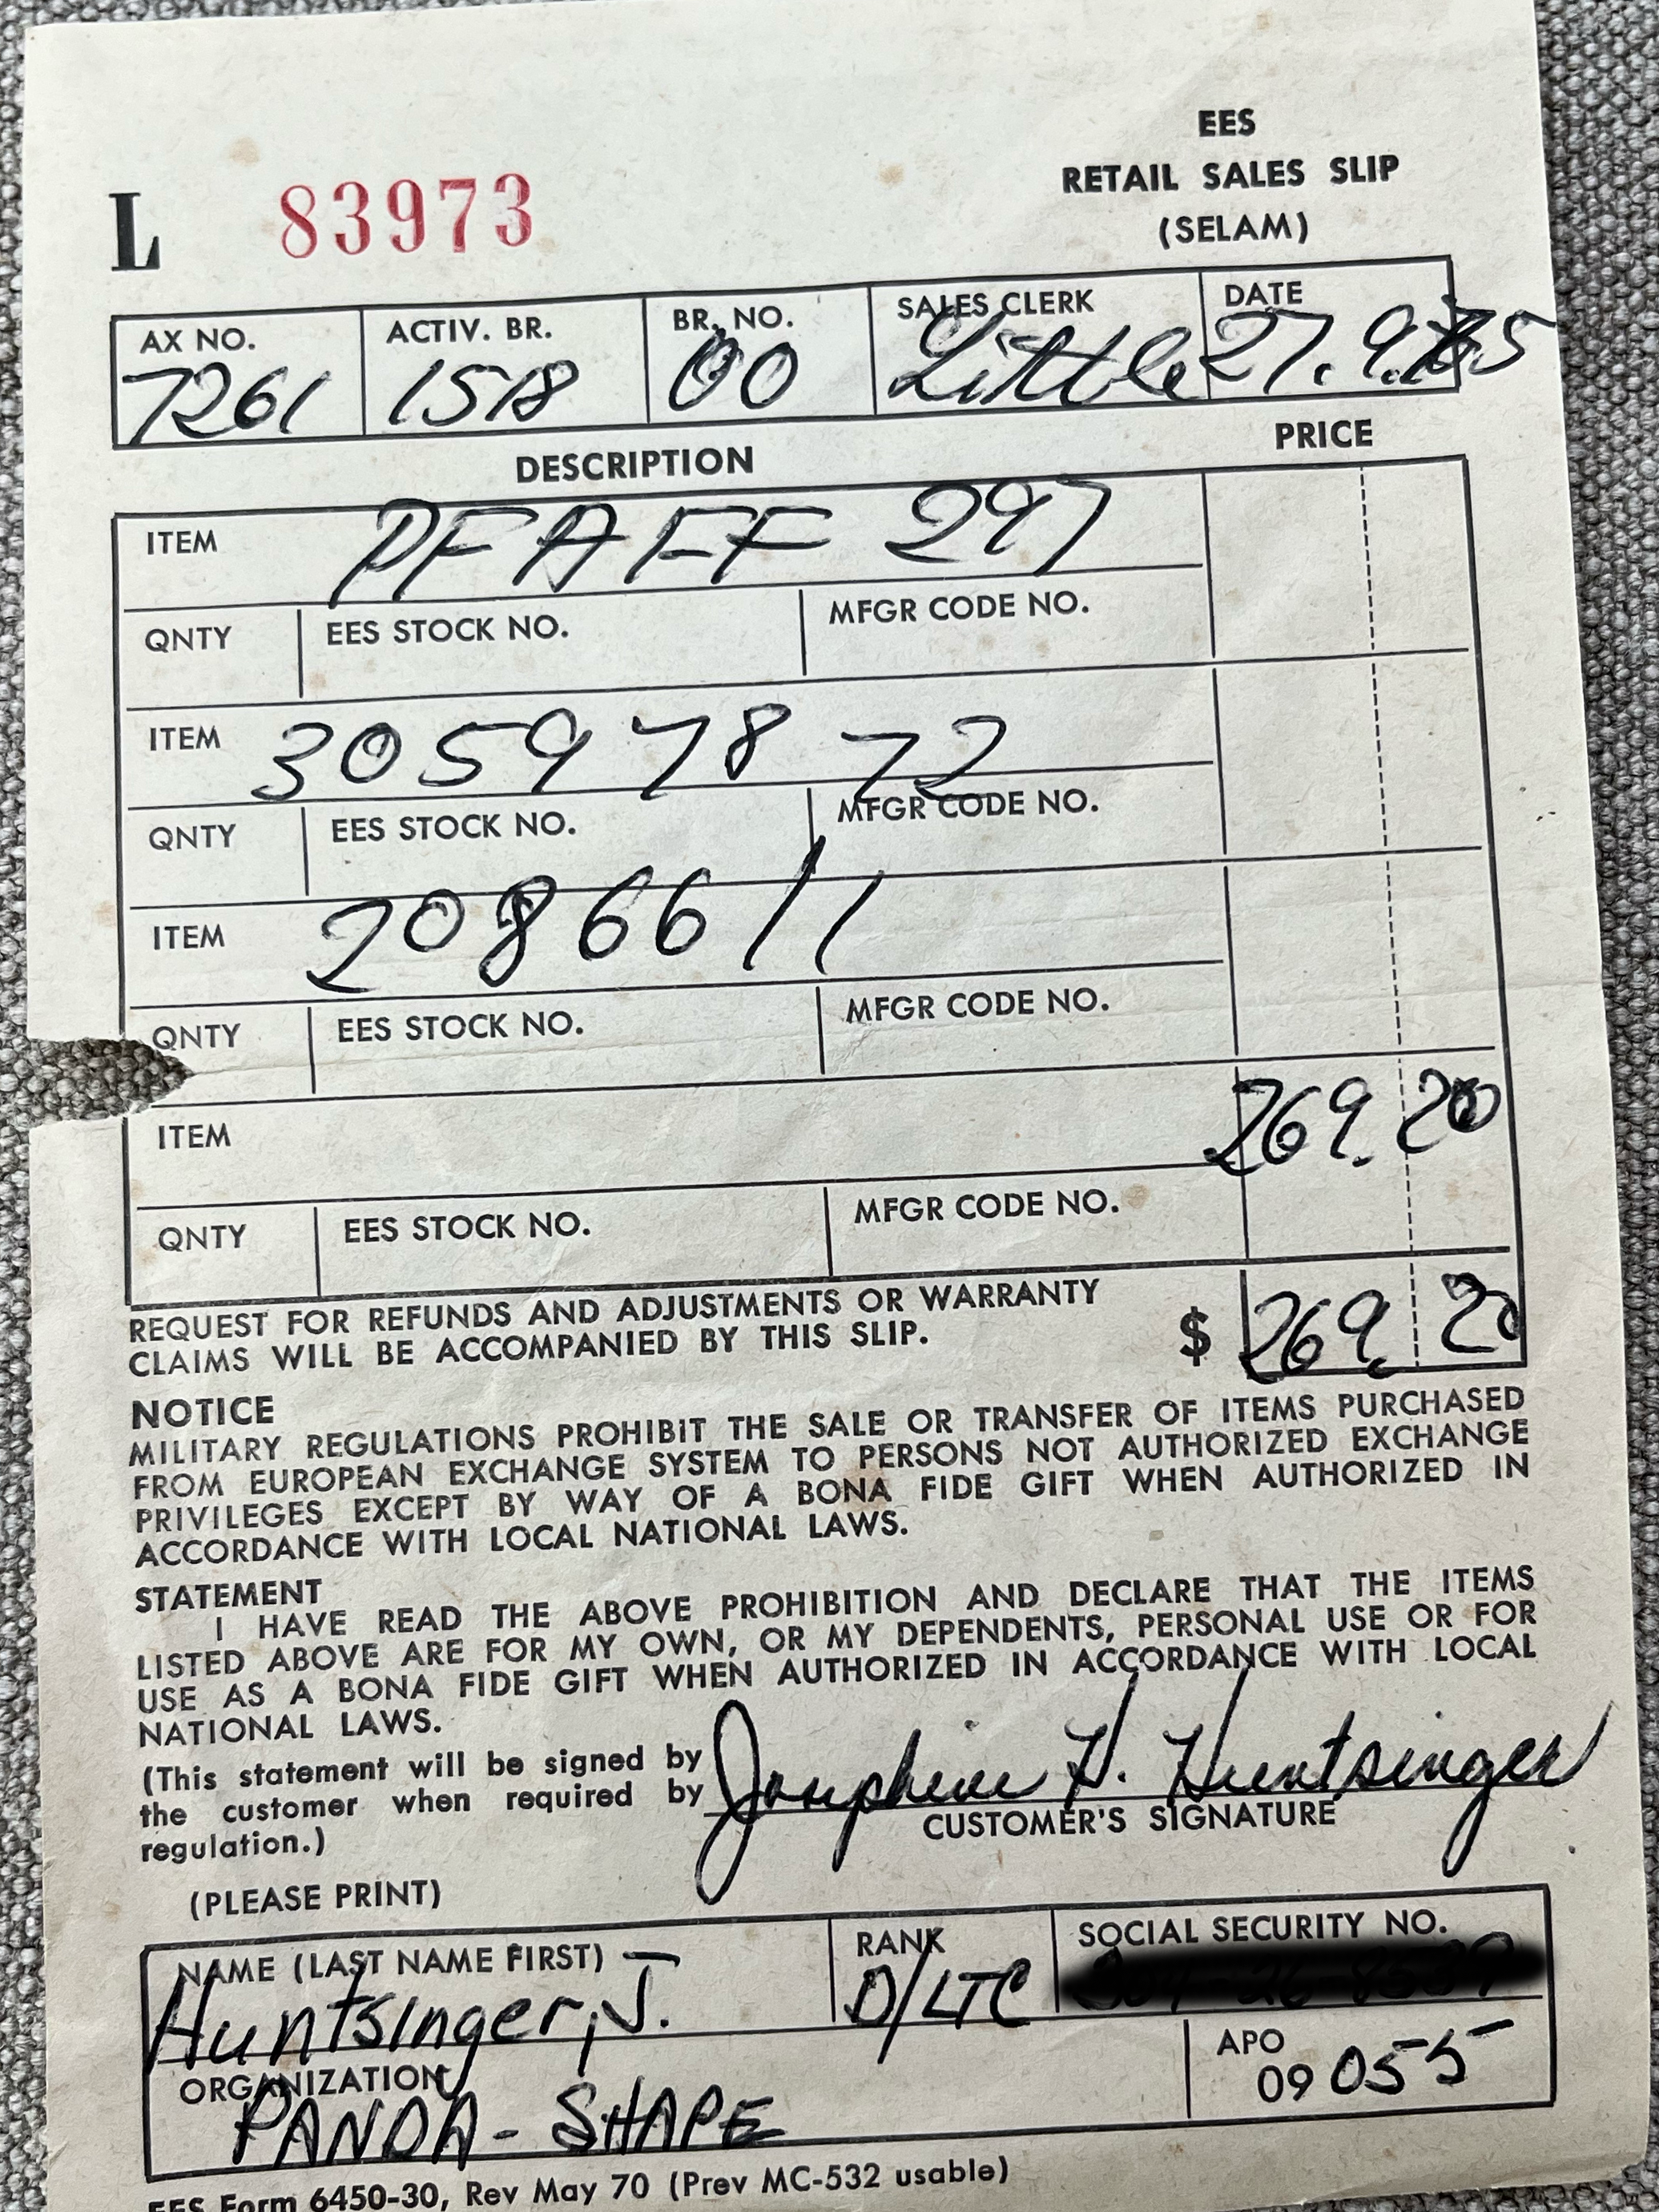 EES
RETAIL SALES SLIP
(SELAM)
L 83973
AX NO. ACTIV. BR. BR. NO. SALES CLERK DATE
7261 1518 00 Little 27.9.75
DESCRIPTION PRICE
ITEM PFAFF 297
QNTY EES STOCK NO. MFGR CODE NO.
ITEM 3059 78 72
QNTY EES STOCK NO. MFGR CODE NO.
ITEM 2086611
QNTY EES STOCK NO. MFGR CODE NO.
ITEM 269. 20
QNTY EES STOCK NO. MFGR CODE NO.
REQUEST FOR REFUNDS AND ADJUSTMENTS OR WARRANTY
CLAIMS WILL BE ACCOMPANIED BY THIS SLIP. $ 269. 20
NOTICE
MILITARY REGULATIONS PROHIBIT THE SALE OR TRANSFER OF ITEMS PURCHASED
FROM EUROPEAN EXCHANGE SYSTEM TO PERSONS NOT AUTHORIZED EXCHANGE
PRIVILEGES EXCEPT BY WAY OF A BONA FIDE GIFT WHEN AUTHORIZED IN
ACCORDANCE WITH LOCAL NATIONAL LAWS.
STATEMENT
I HAVE READ THE ABOVE PROHIBITION AND DECLARE THAT THE ITEMS
LISTED ABOVE ARE FOR MY OWN, OR MY DEPENDENTS, PERSONAL USE OR FOR
USE AS A BONA FIDE GIFT WHEN AUTHORIZED IN ACCORDANCE WITH LOCAL
NATIONAL LAWS.
(This statement will be signed by
the customer when required by
regulation.)
Josephine H. Huntsinger
CUSTOMER'S SIGNATURE
(PLEASE PRINT)
NAME (LAST NAME FIRST) RANK SOCIAL SECURITY NO.
Huntsinger, J. D/LTC
ORGANIZATION APO
PANDA - SHAPE 09055
EES Form 6450-30, Rev May 70 (Prev MC-532 usable)